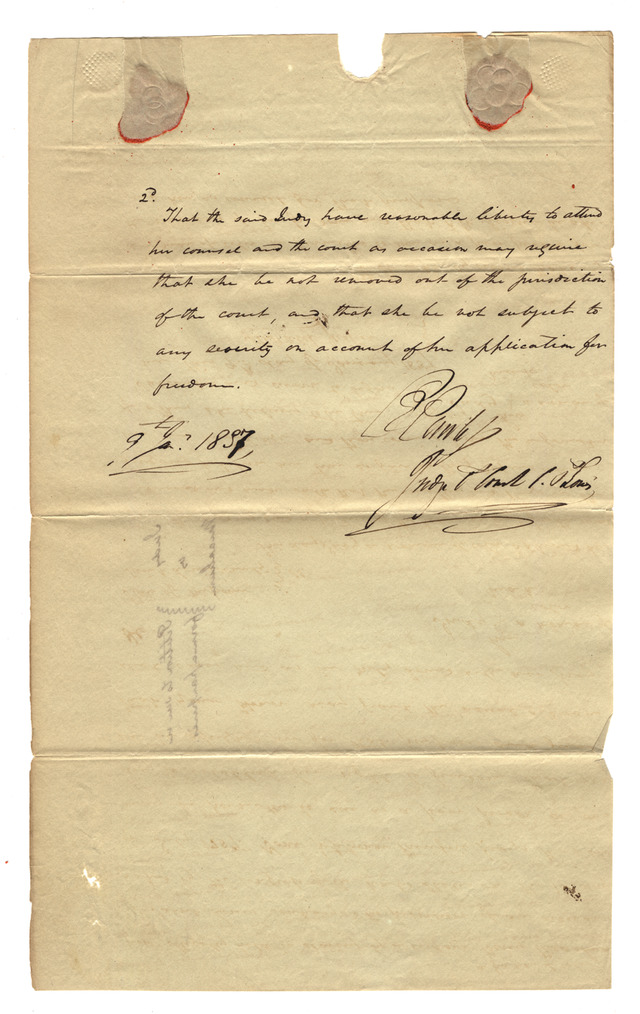 2d.
That the said Judy have reasonable liberty to attend
her counsel and the court as occasion may require
that she be not removed out of the jurisdiction
of the court, and that she be not subject to
any severity on account of her application for
freedom.
9th Ja.y 1837,
Judge C Court C. St Louis